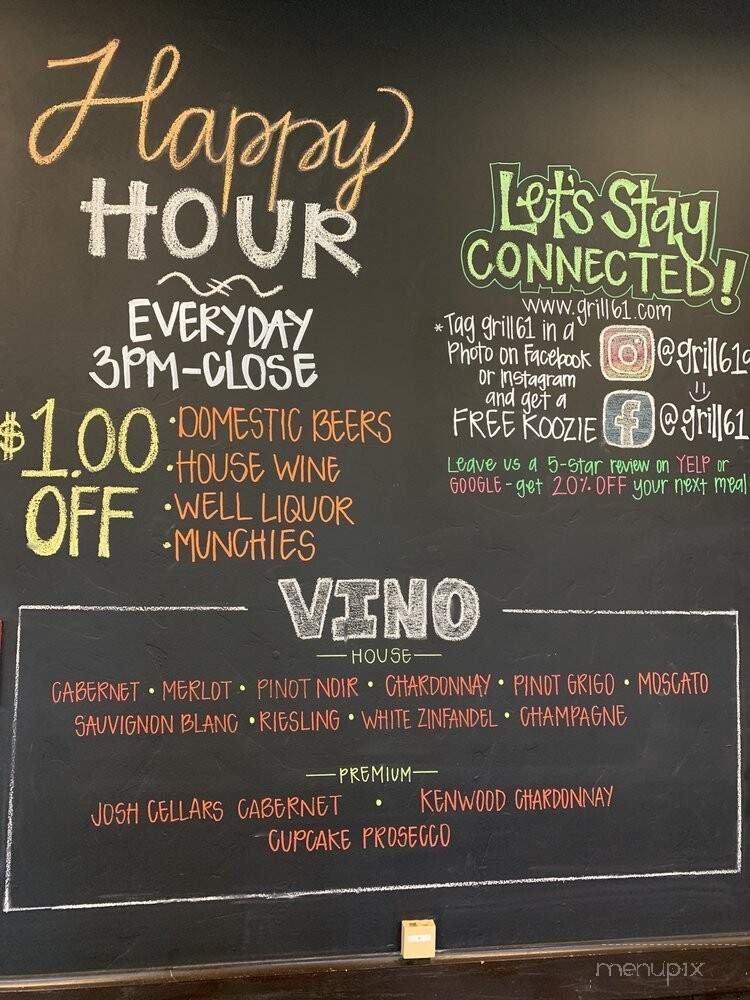 Happy
HOUR
EVERYDAY
3PM-CLOSE
$1.00
OFF
• DOMESTIC BEERS
• HOUSE WINE
• WELL LIQUOR
• MUNCHIES
Let's Stay
CONNECTED!
www.grill61.com
*Tag grill61 in a
Photo on Facebook
or Instagram
and get a
FREE KOOZIE
@grill61
@grill61
Leave us a 5-star review on YELP or
GOOGLE - get 20% OFF your next meal
VINO
HOUSE
CABERNET • MERLOT • PINOT NOIR • CHARDONNAY • PINOT GRIGO • MOSCATO
SAUVIGNON BLANC • RIESLING • WHITE ZINFANDEL • CHAMPAGNE
PREMIUM
JOSH CELLARS CABERNET • KENWOOD CHARDONNAY
CUPCAKE PROSECCO
menupix